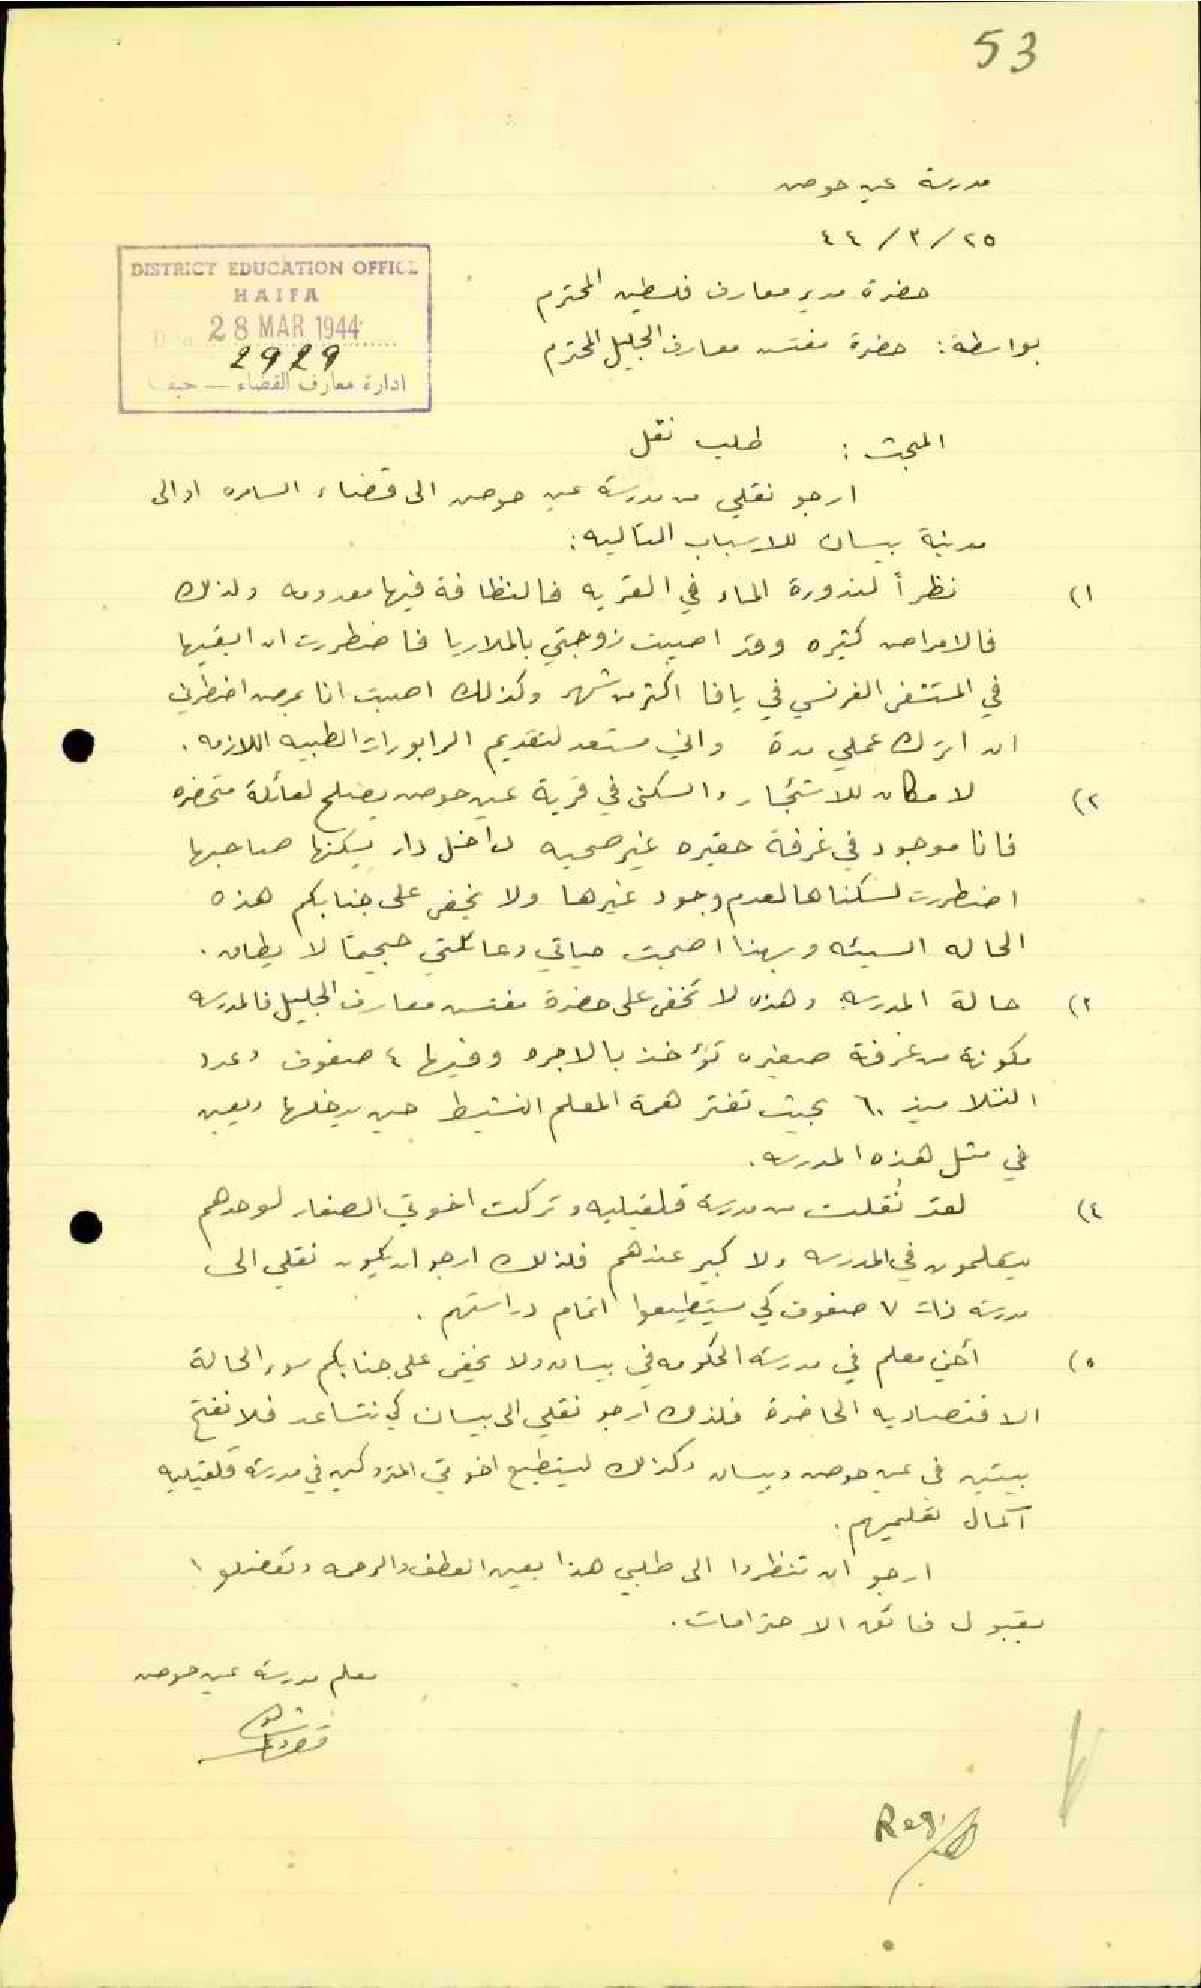 53
مدرسة عين حوض
٢٥/٣/٤٤
DISTRICT EDUCATION OFFICE
HAIFA
28 MAR 1944
2929
ادارة معارف القضاء — حيفا
حضرة مدير معارف فلسطين المحترم
بواسطة: حضرة مفتش معارف الجليل المحترم
المبحث : طلب نقل
ارجو نقلي من مدرسة عين حوض الى قضاء السامره او الى
مدينة بيسان للاسباب التاليه:
١) نظرأ لندورة الماء في القريه فالنظافة فيها معدومه ولذلك
فالامراض كثيره وقد اصيبت زوجتي بالملاريا فاضطررت ان ابقيها
في المستشفى الفرنسي في يافا اكثر من شهر وكذلك اصبت انا بمرض اضطرني
ان اترك عملي مدة واني مستعد لتقديم الرابورات الطبيه اللازمه.
٢) لا مكان للاستئجار والسكن في قرية عين حوض يصلح لعائلة متحضره
فانا موجود في غرفة حقيره غير صحيه داخل دار يسكنها صاحبها
اضطررت لسكناها لعدم وجود غيرها ولا يخفى على جنابكم هذه
الحاله السيئه وبهذا اصبحت حياتي وعائلتي جحيمًا لا يطاق.
٣) حالة المدرسه وهذه لا تخفى على حضرة مفتش معارف الجليل فالمدرسه
مكونة من غرفة صغيره تؤخذ بالاجره وفيها ٤ صفوف وعدد
التلاميذ ٦٠ بحيث تفتر همة المعلم النشيط حين يدخلها ويعين
في مثل هذه المدرسه.
٤) لقد نُقلت من مدرسة قلقيليه وتركت اخوتي الصغار لوحدهم
يتعلمون في المدرسه ولا كبير عندهم فلذلك ارجو ان يكون نقلي الى
مدرسة ذات ٧ صفوف كي يستطيعوا اتمام دراستهم.
٥) أخي معلم في مدرسة الحكومه في بيسان ولا يخفى على جنابكم سوء الحالة
الاقتصاديه الحاضرة فلذلك ارجو نقلي الى بيسان كي نتساعد فلا نفتح
بيتين في عين حوض وبيسان وكذلك ليستطيع اخوتي المتروكين في مدرسة قلقيليه
اكمال تعليمهم.
ارجو ان تنظروا الى طلبي هذا بعين العطف والرحمه وتفضلوا
بقبول فائق الاحترامات.
معلم مدرسة عين حوض
Reg.